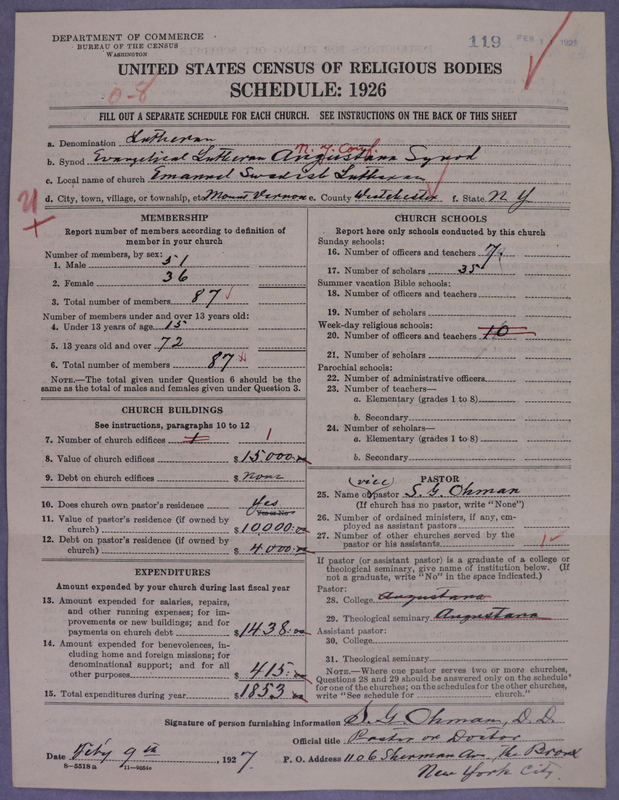 DEPARTMENT OF COMMERCE
BUREAU OF THE CENSUS
WASHINGTON
119
FEB 1
UNITED STATES CENSUS OF RELIGIOUS BODIES
SCHEDULE: 1926
0-8
FILL OUT A SEPARATE SCHEDULE FOR EACH CHURCH. SEE INSTRUCTIONS ON THE BACK OF THIS SHEET
a. Denomination Lutheran
N. Y. Conf.
b. Synod Evangelical Lutheran Augustana Synod
c. Local name of church Emanuel Swedish Lutheran
d. City, town, village, or township, etc. Mount Vernon e. County Westchester f. State N Y
MEMBERSHIP
Report number of members according to definition of
member in your church
Number of members, by sex:
1. Male 51
2. Female 36
3. Total number of members 87
Number of members under and over 13 years old:
4. Under 13 years of age 15
5. 13 years old and over 72
6. Total number of members 87
NOTE.—The total given under Question 6 should be the
same as the total of males and females given under Question 3.
CHURCH BUILDINGS
See instructions, paragraphs 10 to 12
7. Number of church edifices 1 1
8. Value of church edifices $15000:00
9. Debt on church edifices $ None
10. Does church own pastor's residence Yes
(Yes or No)
11. Value of pastor's residence (if owned by
church) $10,000:00
12. Debt on pastor's residence (if owned by
church) $4,000:00
EXPENDITURES
Amount expended by your church during last fiscal year
13. Amount expended for salaries, repairs,
and other running expenses; for im-
provements or new buildings; and for
payments on church debt $1438:00
14. Amount expended for benevolences, in-
cluding home and foreign missions; for
denominational support; and for all
other purposes $415:00
15. Total expenditures during year $1853
CHURCH SCHOOLS
Report here only schools conducted by this church
Sunday schools:
16. Number of officers and teachers 7
17. Number of scholars 35
Summer vacation Bible schools:
18. Number of officers and teachers
19. Number of scholars
Week-day religious schools:
20. Number of officers and teachers 10
21. Number of scholars
Parochial schools:
22. Number of administrative officers
23. Number of teachers—
a. Elementary (grades 1 to 8)
b. Secondary
24. Number of scholars—
a. Elementary (grades 1 to 8)
b. Secondary
PASTOR
(vice)
25. Name of pastor S. G. Ohman
(If church has no pastor, write "None")
26. Number of ordained ministers, if any, em-
ployed as assistant pastors
27. Number of other churches served by the
pastor or his assistants 1
If pastor (or assistant pastor) is a graduate of a college or
theological seminary, give name of institution below. (If
not a graduate, write "No" in the space indicated.)
Pastor:
28. College Augustana
29. Theological seminary Augustana
Assistant pastor:
30. College
31. Theological seminary
NOTE.—Where one pastor serves two or more churches,
Questions 28 and 29 should be answered only on the schedule
for one of the churches; on the schedules for the other churches,
write "See schedule for church."
Signature of person furnishing information S. G. Ohman, D. D.
Official title Pastor or Doctor
Date Feby 9th, 1927 P. O. Address 1106 Sherman Av. The Bronx
8-5518 a 11-9554a
New York City.